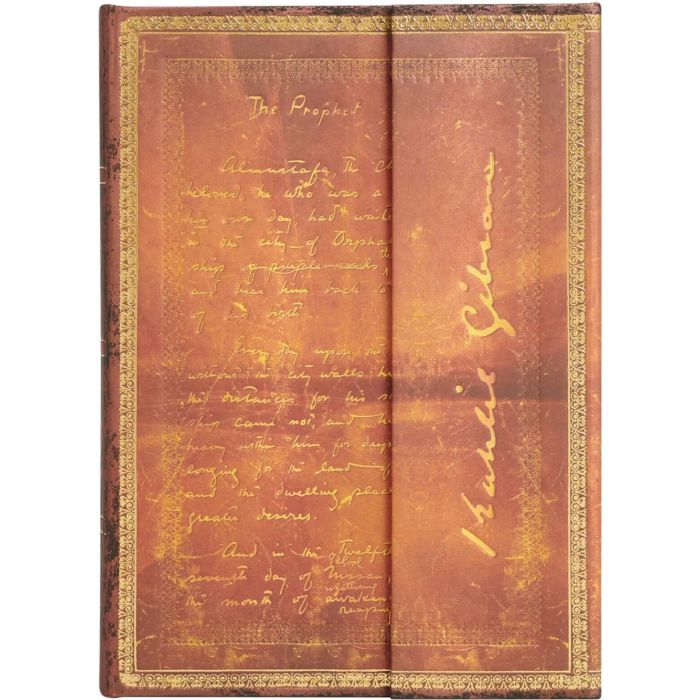 The Prophet
Almustafa, the Ch
beloved, he who was a
his own day, had waite
in the city of Orphal
ship of purple sails th
and bear him back to
of his birth.
Every day upon the
without the city walls he
the distances for his s
ship came not, and he
heavy within him for deep
longing for the land of
and the dwelling place
greater desires.
And in the Twelfth
seventh day of Nissan,
the month of awaken
reaping
Kahlil Gibran